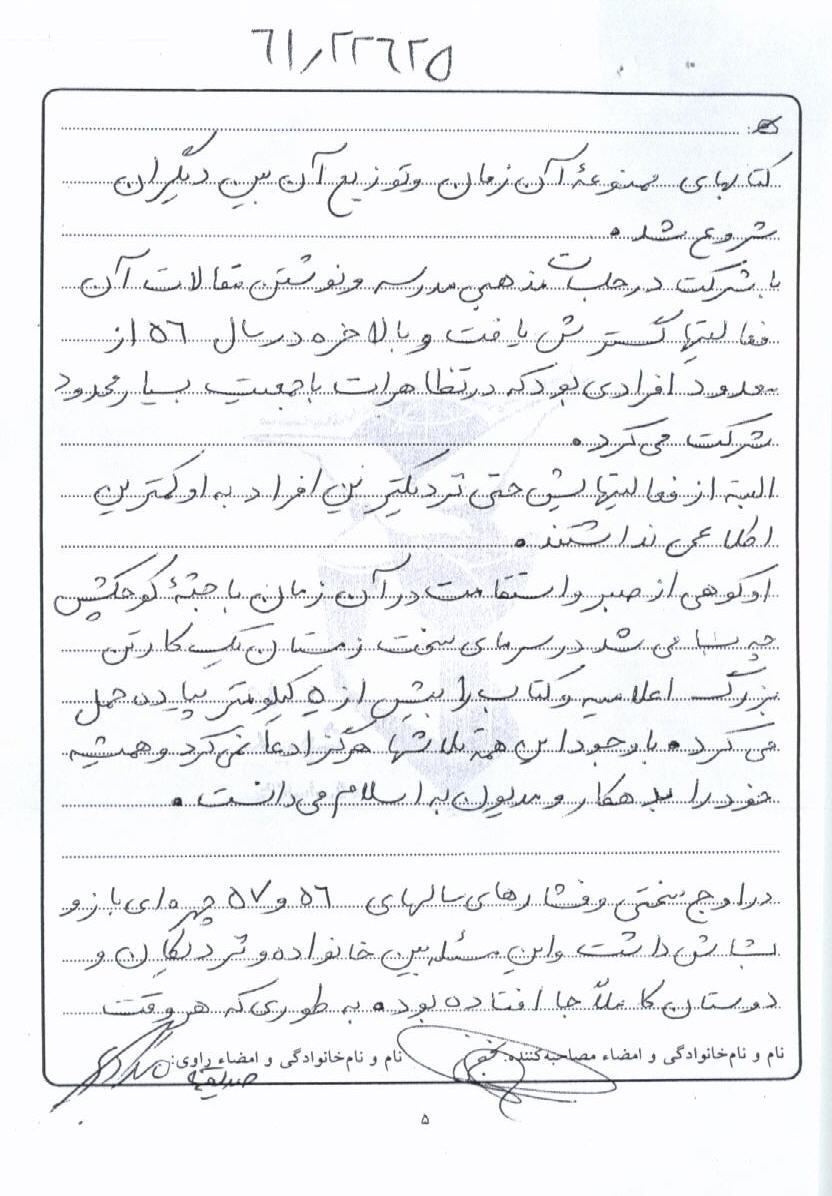 ۶۱/۲۲۶۲۵
کتابهای ممنوعهٔ آن زمان و توزیع آن بین دیگران
شروع شد.
با شرکت در جلسات مذهبی مدرسه و نوشتن مقالات آن
فعالیتها گسترش یافت و بالاخره در سال ۵۶ از
معدود افرادی بود که در تظاهرات با جمعیت بسیار محدود
شرکت می‌کرد.
البته از فعالیتهایش حتی نزدیکترین افراد به او کمترین
اطلاعی نداشتند.
او کوهی از صبر و استقامت در آن زمان با جثهٔ کوچکش
چه بسا می شد در سرمای سخت زمستان یک کارتن
بزرگ اعلامیه و کتاب را بیش از ۵ کیلومتر پیاده حمل
می کرد. با وجود این همه تلاشها هرگز ادعا نمی‌کرد و همیشه
خود را بدهکار و مدیون به اسلام می دانست.
در اوج سختی و فشارهای سالهای ۵۶ و ۵۷ چهره‌ای باز و
بشاش داشت و این مسئله بین خانواده و نزدیکان و
دوستان کاملاً جا افتاده بود. به طوری که هر وقت
نام و نام‌خانوادگی و امضاء مصاحبه‌کننده: نام و نام‌خانوادگی و امضاء راوی:
صدیقه
۵